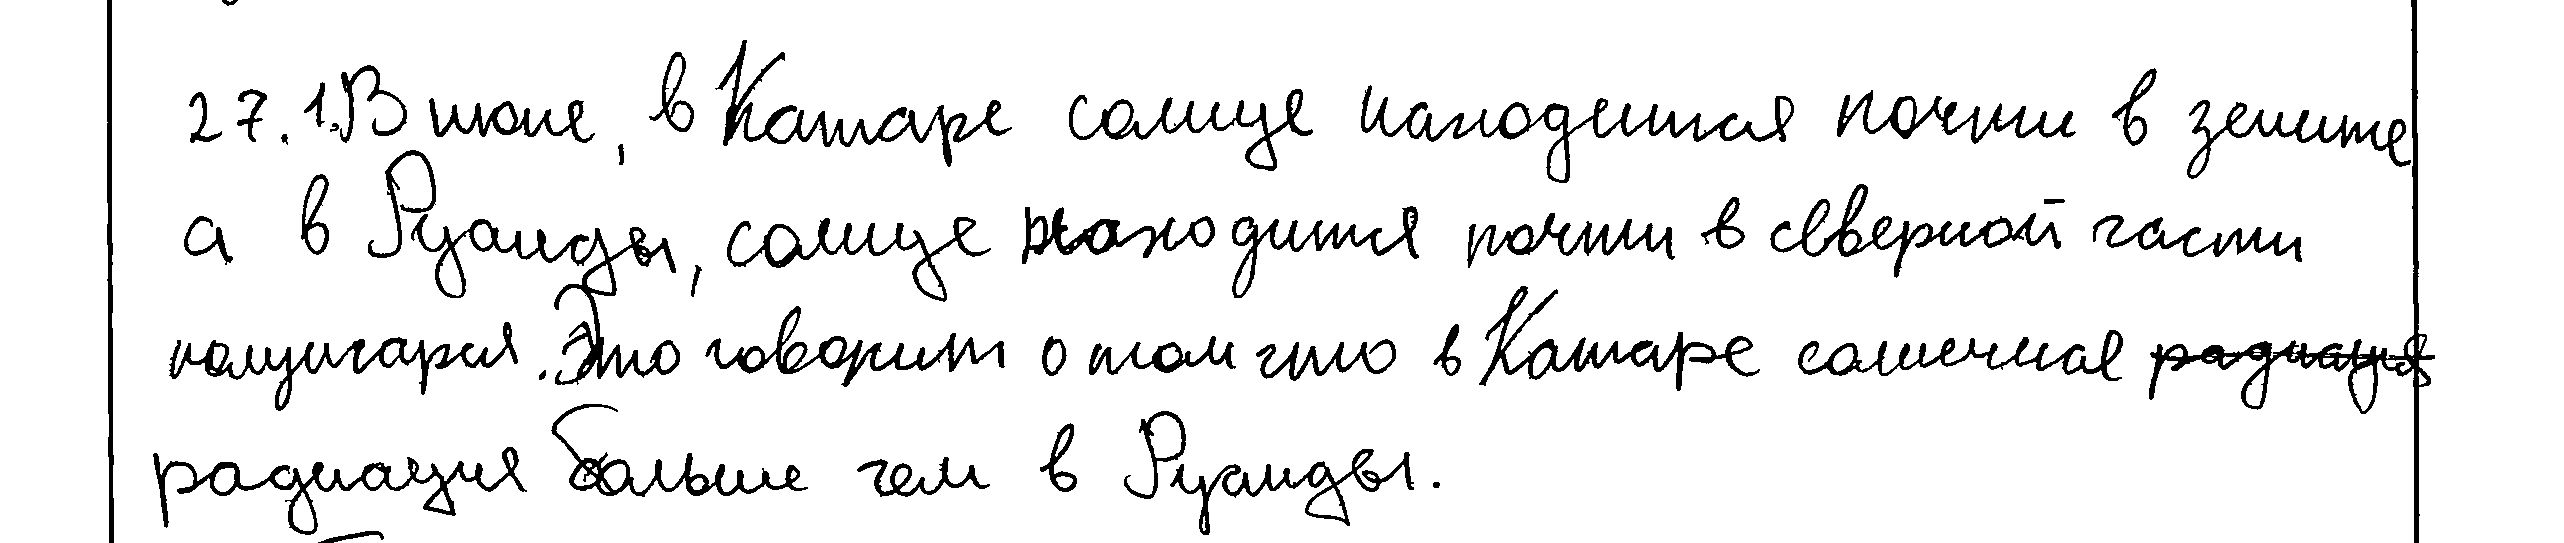 27. 1. В июне, в Катаре солнце находится почти в зените
а в Руанды, солнце находится почти в северной части
полушария. Это говорит о том что в Катаре солнечная радиация
радиация больше чем в Руанды.